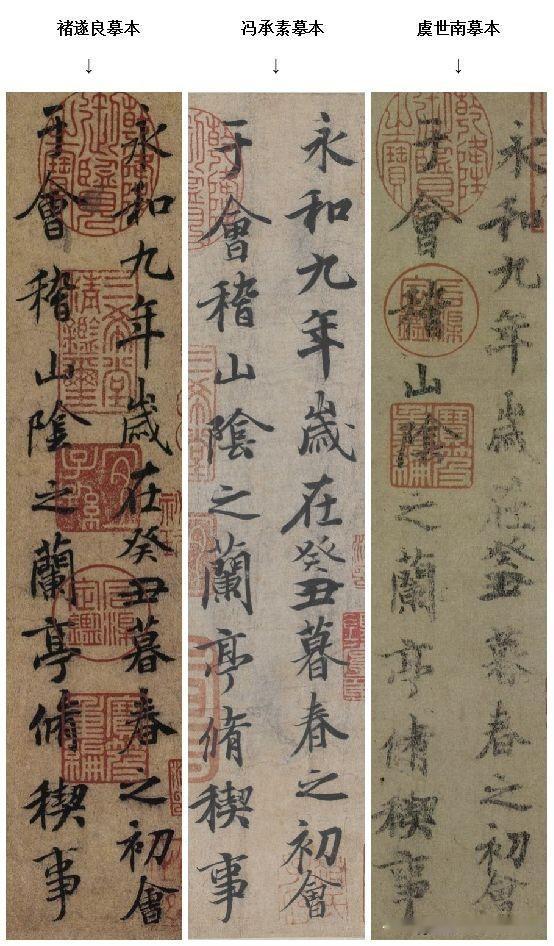 褚遂良摹本
冯承素摹本
虞世南摹本
永和九年歳在癸丑暮春之初會
于會稽山陰之蘭亭脩稧事
永和九年歳在癸丑暮春之初會
于會稽山陰之蘭亭脩稧事
永和九年歳在癸丑暮春之初會
于會稽山陰之蘭亭脩稧事